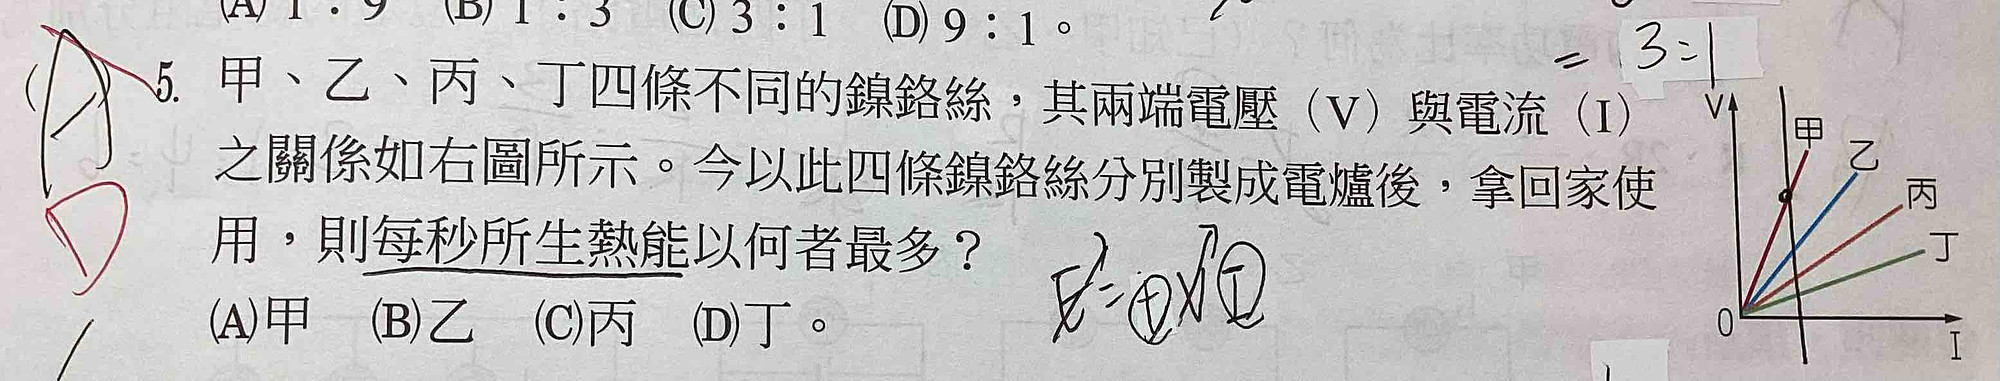 (A) 1：9　(B) 1：3　(C) 3：1　(D) 9：1。
= 3:1
(A)
D
5. 甲、乙、丙、丁四條不同的鎳鉻絲，其兩端電壓（V）與電流（I）
之關係如右圖所示。今以此四條鎳鉻絲分別製成電爐後，拿回家使
用，則每秒所生熱能以何者最多？
(A)甲　(B)乙　(C)丙　(D)丁。
V
甲
乙
丙
丁
0
I